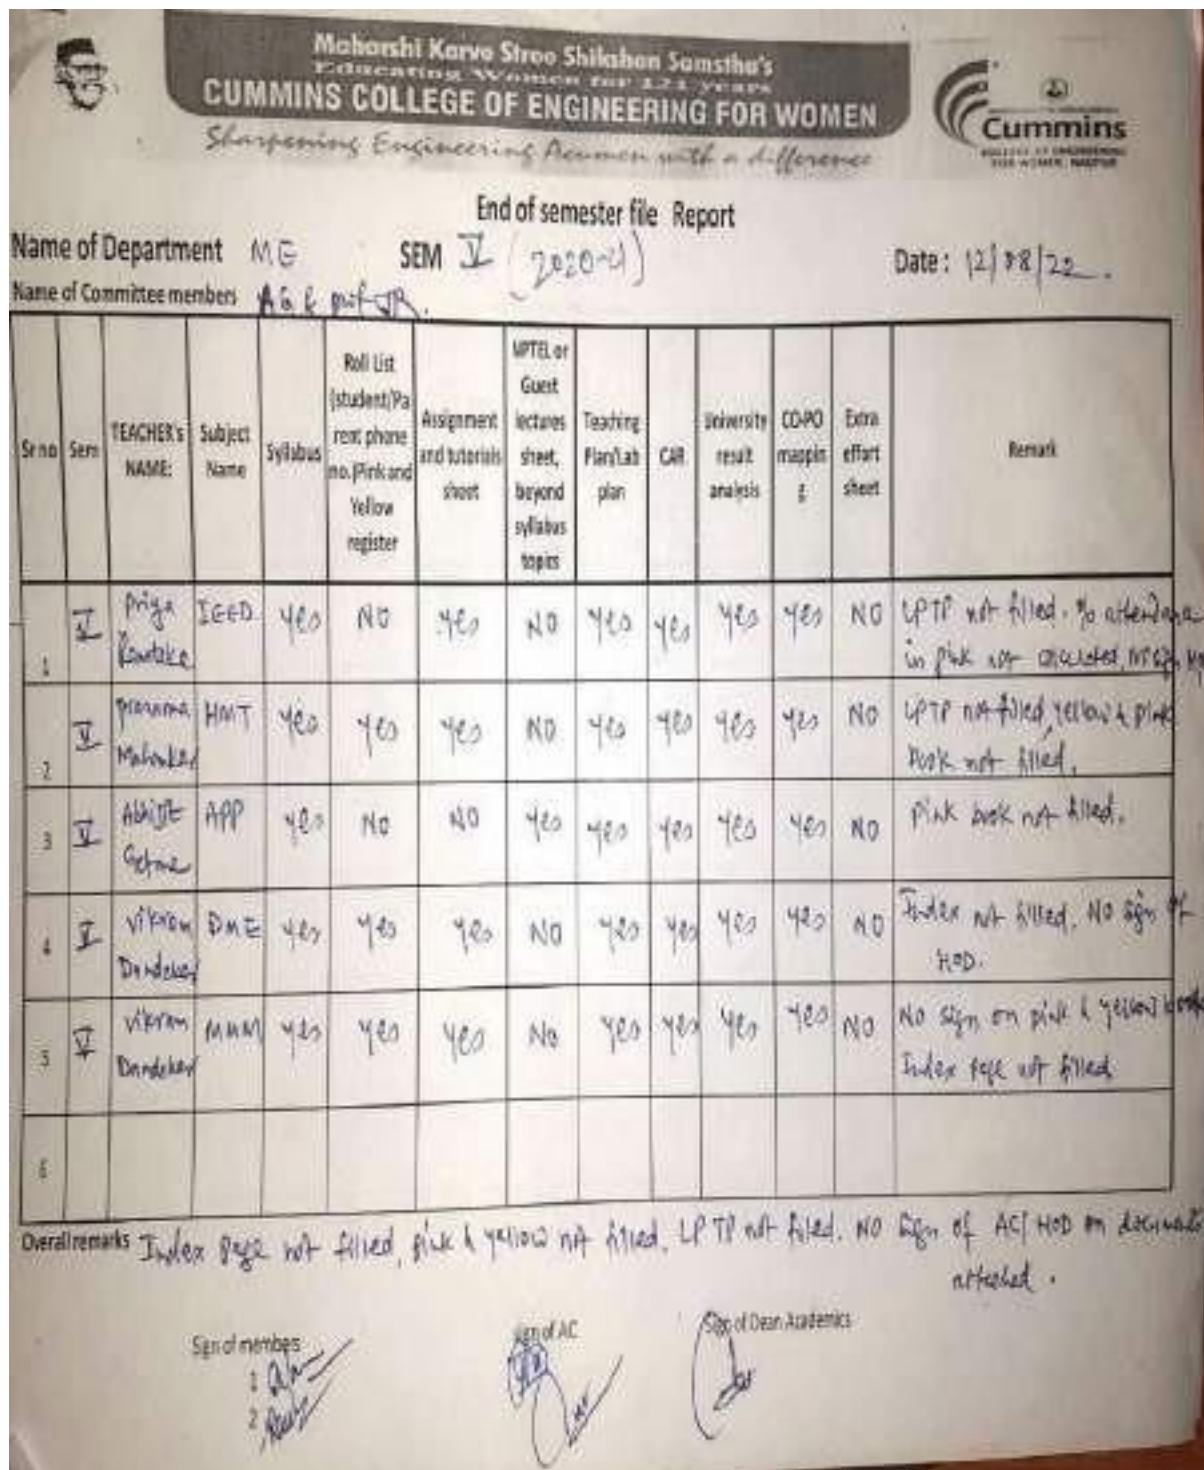 Maharshi Karve Stree Shikshan Samstha's
Educating Women for 121 years
CUMMINS COLLEGE OF ENGINEERING FOR WOMEN
Sharpening Engineering Acumen with a difference
Cummins
COLLEGE OF ENGINEERING
FOR WOMEN, NAGPUR
End of semester file Report
Name of Department ME SEM V (2020-21) Date: 12/08/22.
Name of Committee members AG & prof JR.
Sr no Sem TEACHER's NAME: Subject Name Syllabus Roll List (student/Parent phone no.)Pink and Yellow register Assignment and tutorials sheet NPTEL or Guest lectures sheet, beyond syllabus topics Teaching Plan/Lab plan CAR University result analysis CO-PO mapping Extra effort sheet Remark
1 V Priya IEED Yes NO Yes NO Yes Yes Yes Yes NO LPTP not filled. % attendance
in pink not
2 V HMT Yes Yes Yes NO Yes Yes Yes Yes NO LPTP not filled, yellow & pink
book not filled.
3 V Abhijit APP Yes NO NO Yes Yes Yes Yes Yes NO Pink book not filled.
4 V Vikram Dandekar DME Yes Yes Yes NO Yes Yes Yes Yes NO Index not filled. NO sign of
HOD.
5 V Vikram Dandekar Yes Yes Yes No Yes Yes Yes Yes NO No sign on pink & yellow book
Index page not filled
6
Overall remarks Index page not filled, pink & yellow not filled. LP TP not filled. NO sign of AC/HOD on documents
attached.
Sign of members Sign of AC Sign of Dean Academics
1
2